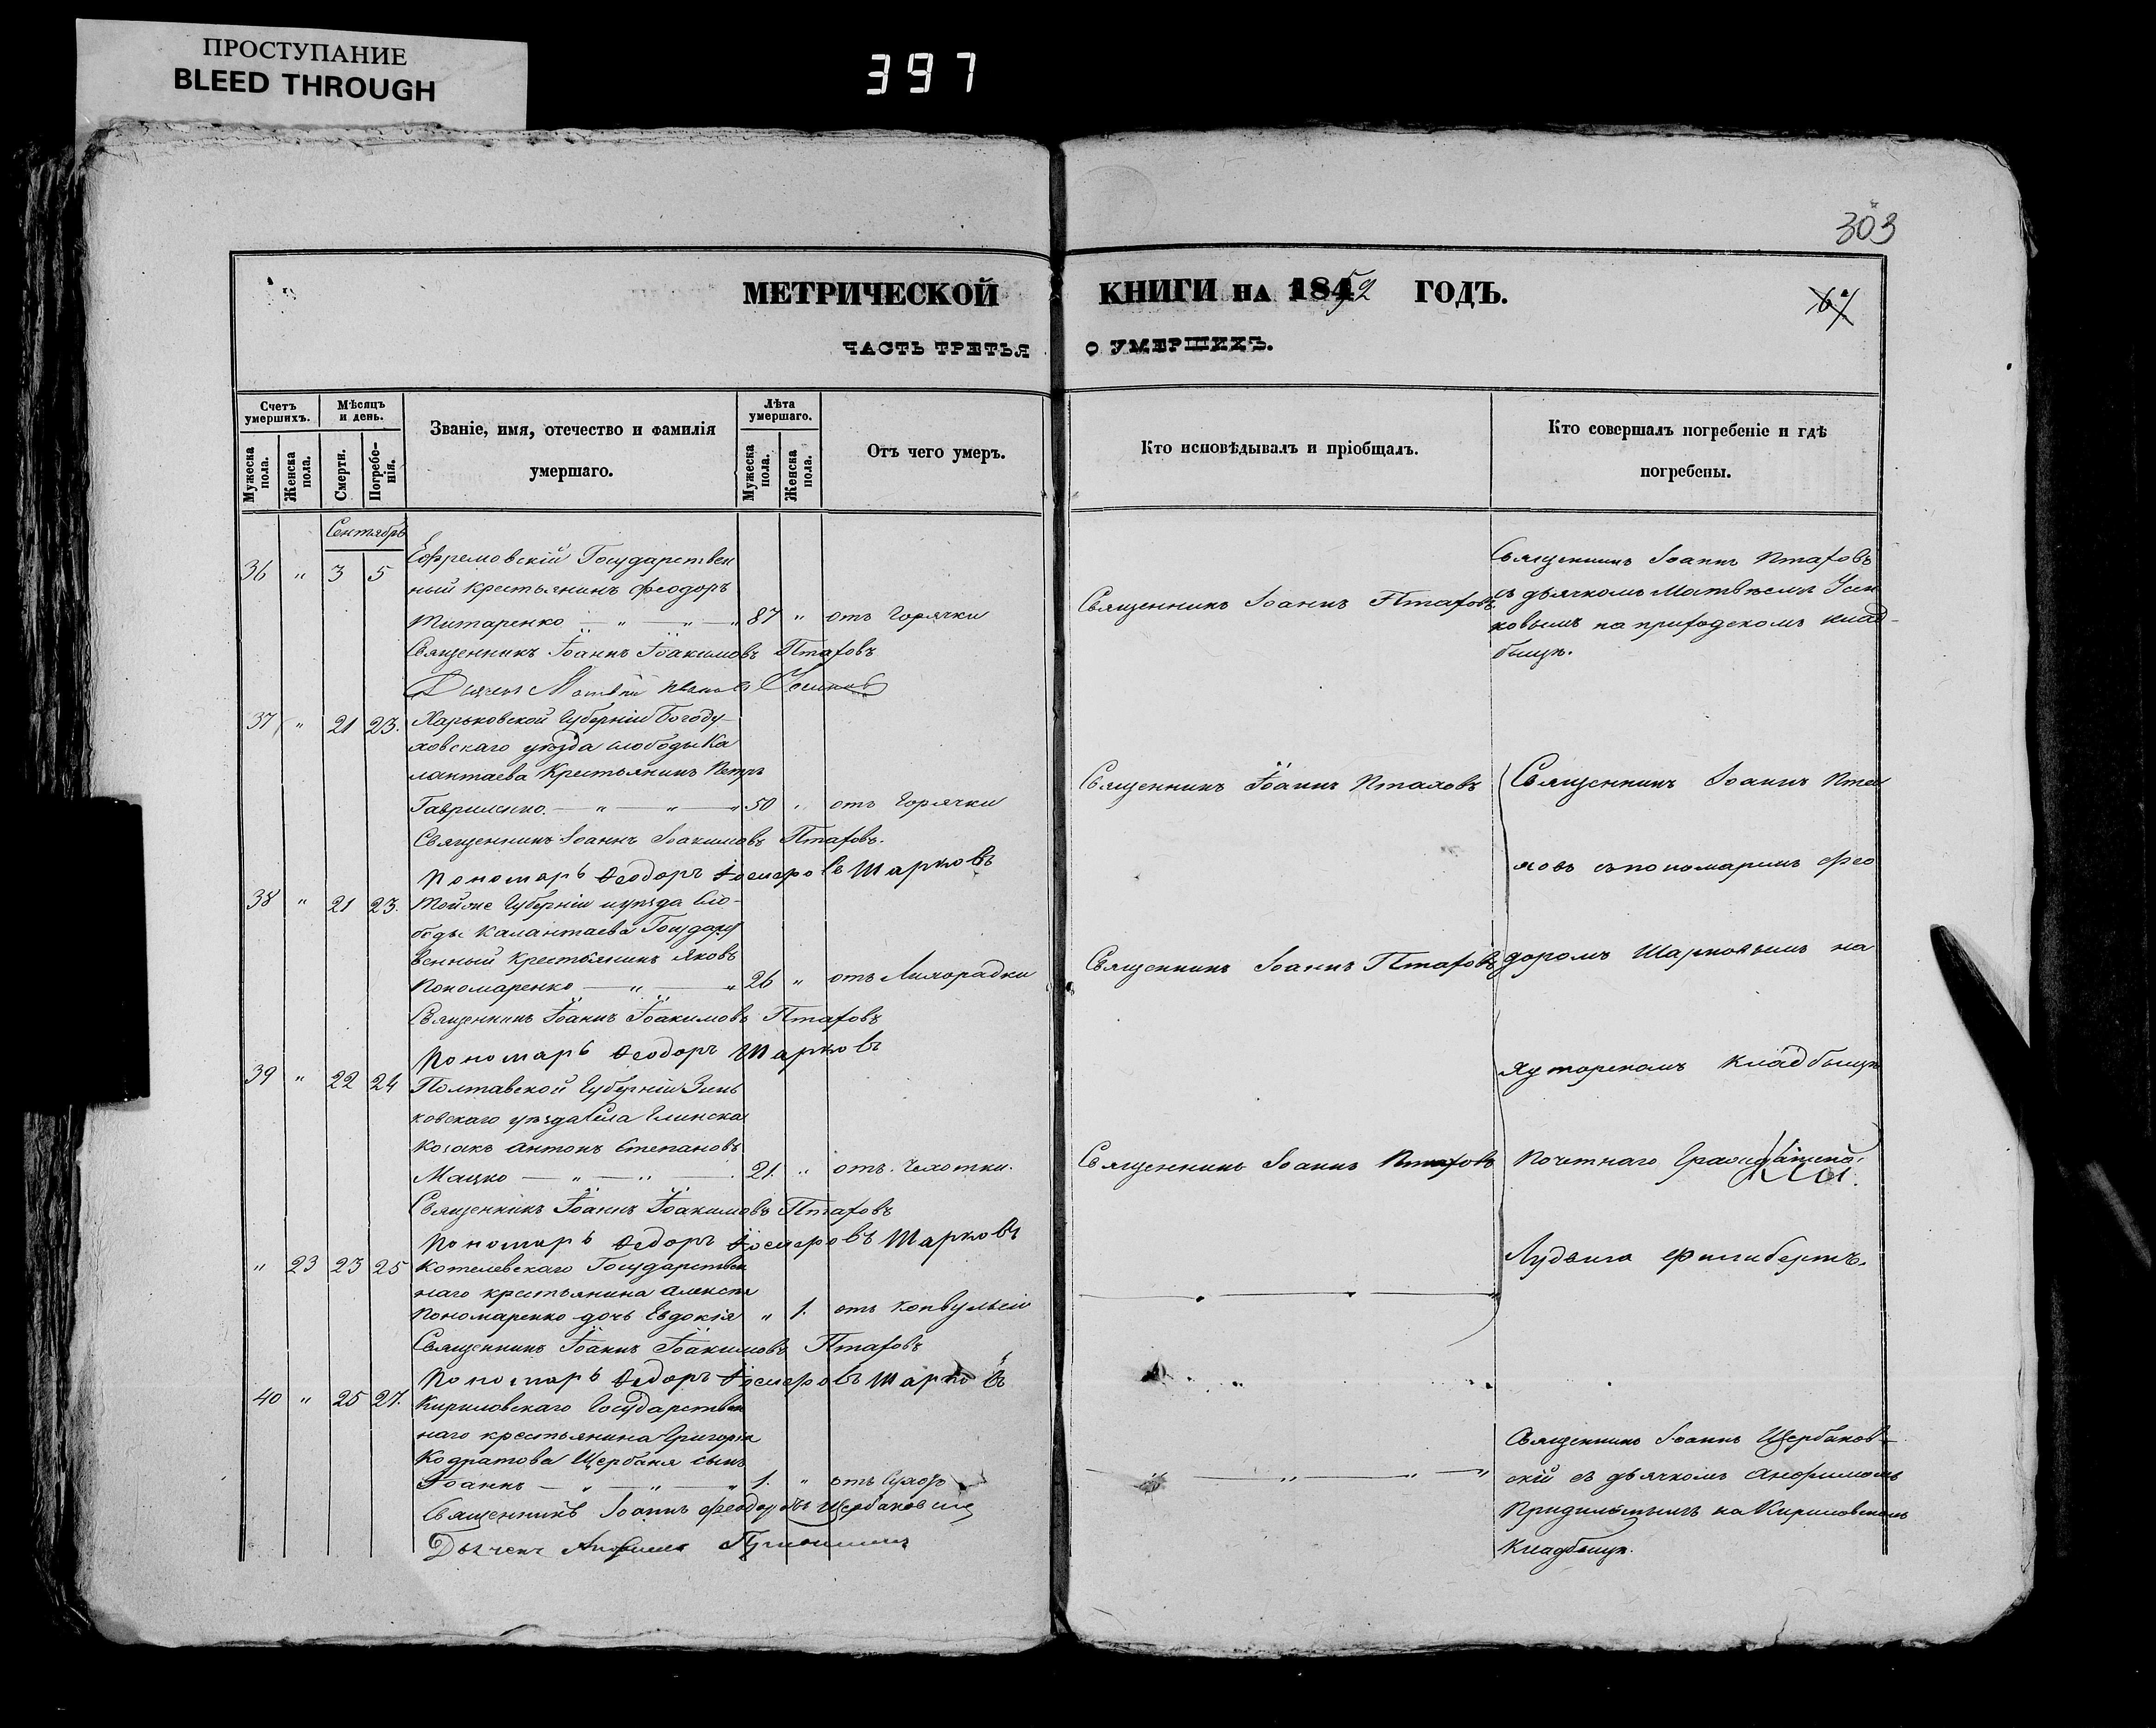 ПРОСТУПАНИЕ
BLEED THROUGH
397
303
МЕТРИЧЕСКОЙ КНИГИ НА 1852 ГОДЪ.
ЧАСТЬ ТРЕТЬЯ О УМЕРШИХЪ.
Счетъ умершихъ.
Мужеска пола.
Женска пола.
Мѣсяцъ и день.
Смерти.
Погребенія.
Званіе, имя, отечество и фамилія
умершаго.
Лѣта умершаго.
Мужеска пола.
Женска пола.
Отъ чего умеръ.
Кто исповѣдывалъ и пріобщалъ.
Кто совершалъ погребеніе и гдѣ
погребены.
Сентябрь
36 " 3 5 Ефремовскій Государствен
ный крестьянинъ Феодоръ
Титаренко — " — " — " 87 " отъ Горячки
Священникъ Іоаннъ Птаховъ
Священникъ Іоаннъ Птаховъ
съ дьячкомъ Матвѣемъ Усен
ковымъ на приходскомъ клад-
бищѣ.
Священникъ Іоаннъ Іоакимовъ Птаховъ
Дьячекъ Матвѣй
37 " 21 23. Харьковской Губерніи Богоду-
ховскаго уѣзда слободы Ка
лантаева Крестьянинъ Петръ
Гавриленко. — " — " — " 50 " отъ Горячки
Священникъ Іоаннъ Птаховъ
Священникъ Іоаннъ Іоакимовъ Птаховъ.
Пономарь Феодоръ Шарковъ
38 " 21 23. Тойже Губерніи и уѣзда Сло-
боды Калантаева Государст
венный Крестьянинъ Яковъ
Пономаренко — " — " 26 " отъ Лихорадки
Священникъ Іоаннъ Птаховъ
Священникъ Іоаннъ Іоакимовъ Птаховъ
Пономарь Феодоръ Шарковъ
39 " 22 24 Полтавской Губерніи Зинь
ковскаго уѣзда Села Глинска
Козакъ Антонъ Степановъ
Мацко — " — " — 21. " отъ Чахотки.
Священникъ Іоаннъ Птаховъ
Священникъ Іоаннъ Іоакимовъ Птаховъ
Пономарь Федоръ Шарковъ
" 23 23 25 Котелевскаго Государствен
наго крестьянина Алексѣя
Пономаренко дочь Евдокія " 1. отъ конвульсіи
Священникъ Іоаннъ Іоакимовъ Птаховъ
Пономарь Федоръ Шарковъ
Священникъ Іоаннъ Пта
ховъ съ пономаремъ Фео
доромъ Шарковымъ на
хуторскомъ кладбищѣ
Почетнаго
Лудвига Филибертъ.
40 " 25 27. Кириловскаго Государствен
наго крестьянина Григорія
Кодратова Щербаня сынъ
Іоаннъ — " — " — " 1. "
Священникъ Іоаннъ Щербаков-
скій съ дьячкомъ Анфимомъ
на Кириловскомъ
Кладбищѣ.
Священникъ Іоаннъ Феодоровъ Щербаковскій
Дьячекъ Анфимъ